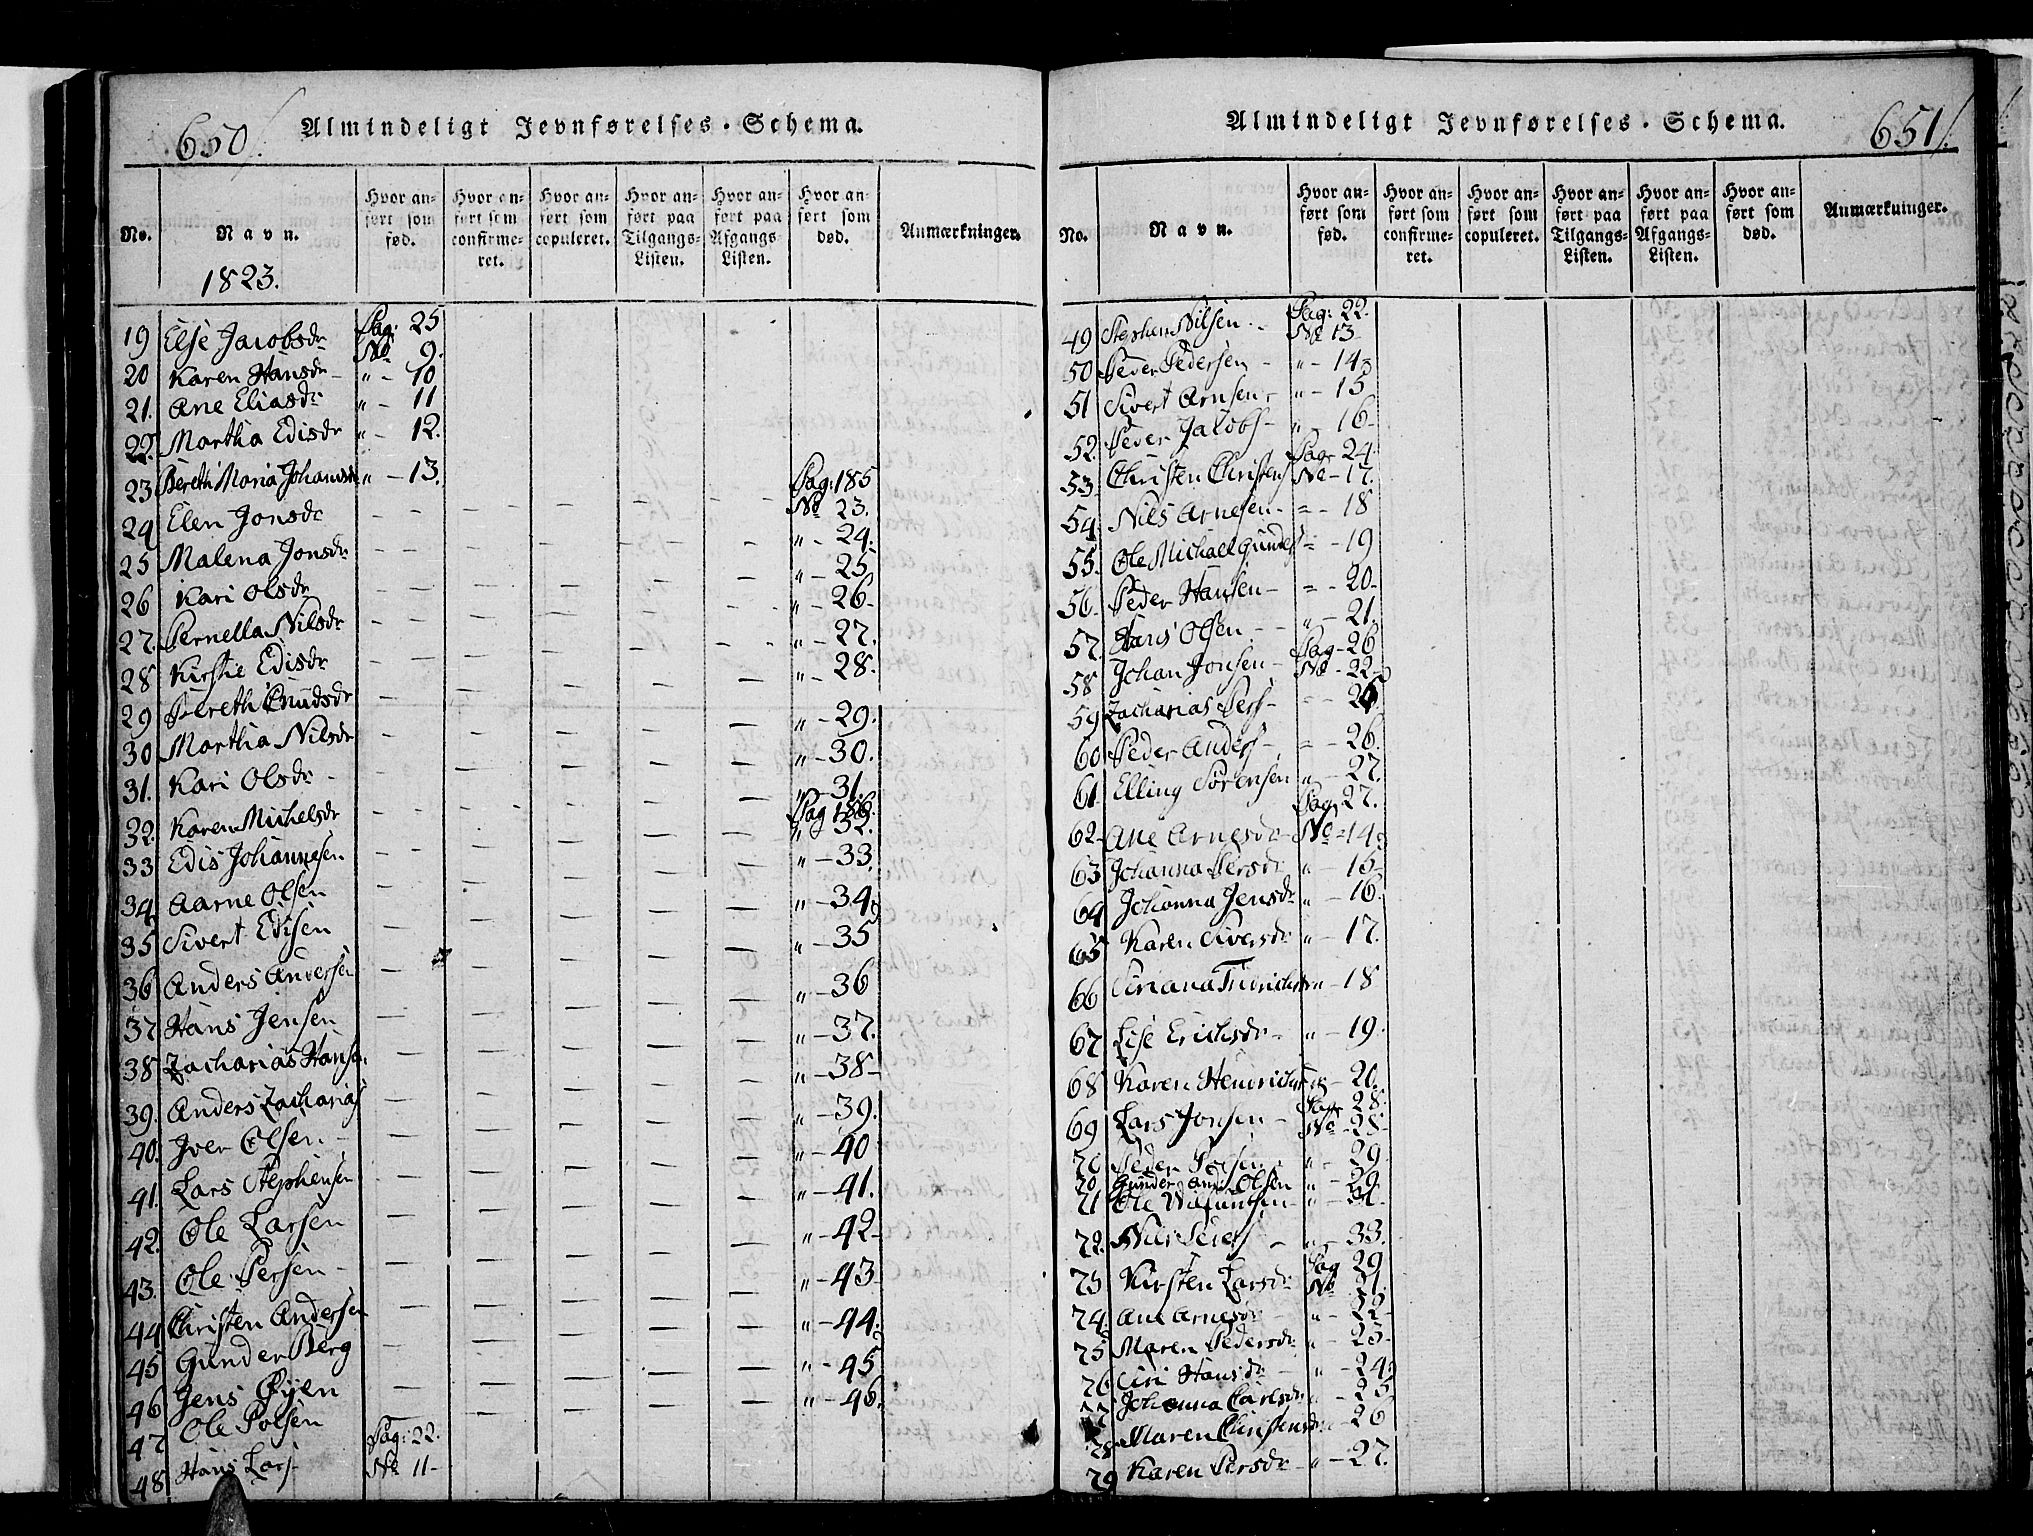 650/.
Almindeligt Jevnførelses-Schema.
No.
Navn.
Hvor anført som fød.
Hvor anført som confirmeret.
Hvor anført som copuleret.
Hvor anført paa Tilgangs-Listen.
Hvor anført paa Afgangs-Listen.
Hvor anført som død.
Anmærkninger.
1823.
19 Else Jacobsdr Pag: 25 No 9.
20 Karen Hansdr - " - 10
21. Ane Eliasdr " - 11
22. Martha Edisdr " - 12.
23 Bereth Maria Johansdr " - 13.
24 Elen Jonsdr Pag: 185 No 23.
25 Malena Jonsdr " - 24.
26 Kari Olsdr " - 25
27. Pernella Nilsdr " - 26-
28 Kirstie Edisdr " - 27.
29 Bereth Cnudsdr " - 28.
30 Martha Nilsdr " - 29.
31. Kari Olsdr - " - 30.
32. Karen Michelsdr " - 31.
33 Edis Johannesen Pag 186. " - 32.
34. Aarne Olsen " - 33.
35 Sivert Edisen " - 34
36 Anders Andersen " - 35
37. Hans Jensen " - 36
38 Zacharias Hansen " - 37.
39. Anders Zacharias " - 38-
40. Iver Olsen - " - 39.
41. Lars Stephensen " - 40
42. Ole Larsen " - 41.
43. Ole Persen - " - 42-
44 Christen Andersen " - 43
45 Gunder Berg " - 44.
46 Jens Øyen " - 45
47 Ole Polsen " - 46.
48 Hans Lars- Pag: 22. No 11-
651/.
Almindeligt Jevnførelses-Schema.
No.
Navn.
Hvor anført som fød.
Hvor anført som confirmeret.
Hvor anført som copuleret.
Hvor anført paa Tilgangs-Listen.
Hvor anført paa Afgangs-Listen.
Hvor anført som død.
Anmærkninger.
49 Stephen Nilsen - Pag: 22. No 13-
50 Peder Pedersen - " - 14
51 Sivert Arnsen - " - 15
52. Peder Jacobs- " - 16-
53. Christen Christens Pag 24. No - 17.
54. Nils Arnesen - = - 18
55. Ole Michael Gunders = - 19
56. Peder Hansen - = - 20-
57. Hans Olsen - " - 21.
58 Johan Jonsen - Pag - 26 No - 22-
59 Zacharias Pers- = -
60 Peder Anders- = - 26.
61. Elling Sørensen " - 27.
62- Ane Arnesdr Pag 27. No - 14
63 Johanna Persdr " - 15-
64 Johanna Jensdr " - 16.
65 Karen Siversdr " - 17.
66 " - 18
67 Lise Erichsdr - " - 19.
68 Karen Henrichs " - 20.
69 Lars Jonsen - Pag 28. No - 28-
70 Peder " - 29.
70 Gunder Olsen " -
71 Ole " -
72. Nils Peders " - 33.
73 Kirsten Larsdr Pag 29 No 21.
74. Ane Arnesdr " - 22
75 Maren Pedersdr " - 23-
76 Siri Hansdr - " - 24
77 Johanna Carlsdr " - 25
78 Maren Christensdr - 26
79 Karen Persdr - " - 27.